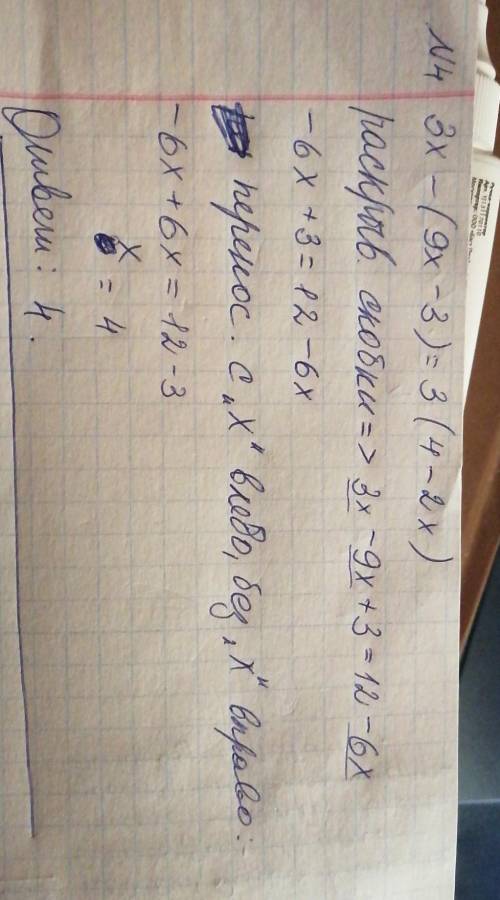 N4 3x - (9x - 3) = 3 (4 - 2x)
раскрыв. скобки => 3x - 9x + 3 = 12 - 6x
-6x + 3 = 12 - 6x
перенос. с „x" влево, без „x" вправо:
-6x + 6x = 12 - 3
x = 4
Ответ: 4.